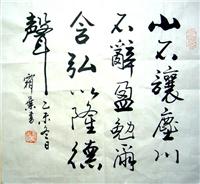 山不讓塵川
不辭盈勉爾
含弘以隆德
聲
乙未冬日
書